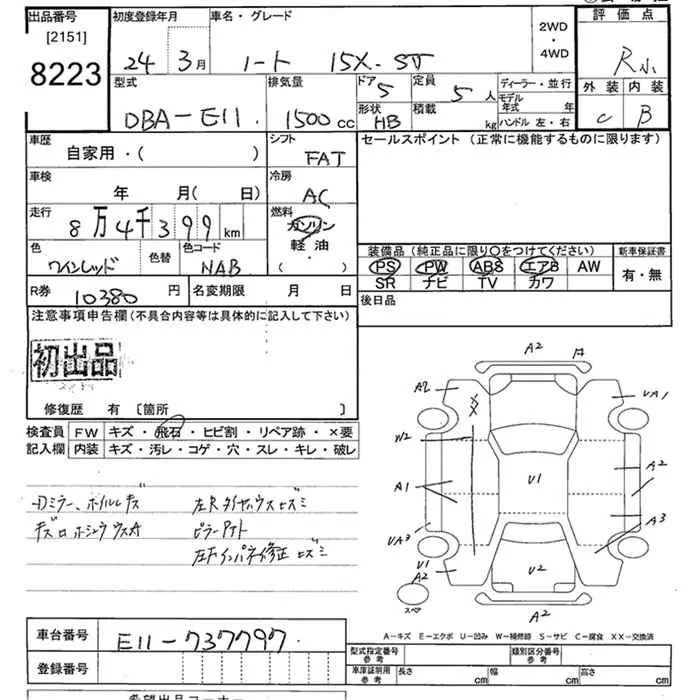 出品番号 [2151] 8223
初度登録年月 24年 3月
車名・グレード ノート 15X-SV
2WD・4WD
評価点 R
外装 C 内装 B
型式 DBA-E11
排気量 1500cc
ドア 5 形状 HB
定員 5人 積載 kg
ディーラー・並行
モデル年式 年
ハンドル 左・右
車歴 自家用・( )
シフト FAT
セールスポイント (正常に機能するものに限ります)
車検 年 月( 日)
冷房 AC
走行 8万4千399km
燃料 ガソリン 軽油 ・( )
色 ワインレッド 色替
色コード NAB
装備品 (純正品に限り○をつけてください)
PS PW ABS エアB AW
SR ナビ TV カワ
新車保証書 有・無
R券 10380円 名変期限 月 日
後日品
注意事項申告欄 (不具合内容等は具体的に記入して下さい)
初出品
修復歴 有 〔箇所 〕
検査員記入欄
FW キズ・飛石・ヒビ割・リペア跡・×要
内装 キズ・汚レ・コゲ・穴・スレ・キレ・破レ
A2
A2
UA1
XX
W2
A1
U1
A2
UA3
A3
U1
A2
U2
A2
スペア
A-キズ E-エクボ U-凹み W-補修跡 S-サビ C-腐食 XX-交換済
車台番号 E11-737797
登録番号
型式指定番号 参考
類別区分番号 参考
車庫証明用 参考 長さ cm 幅 cm 高さ cm
希望出品コーナー